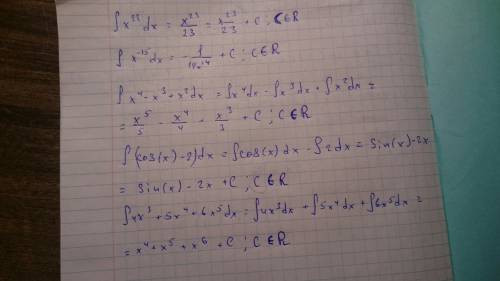 ∫x²²dx = x²³/23 = x²³/23 + C ; C∈R
∫x⁻¹⁵dx = -1/14x¹⁴ + C ; C∈R
∫x⁴-x³+x²dx = ∫x⁴dx - ∫x³dx + ∫x²dx =
= x⁵/5 - x⁴/4 - x³/3 + C ; C∈R
∫(cos(x)-2)dx = ∫cos(x)dx - ∫2dx = Sin(x)-2x
= Sin(x) - 2x + C ; C∈R
∫4x³+5x⁴+6x⁵dx = ∫4x³dx + ∫5x⁴dx + ∫6x⁵dx =
= x⁴+x⁵+x⁶ + C ; C∈R